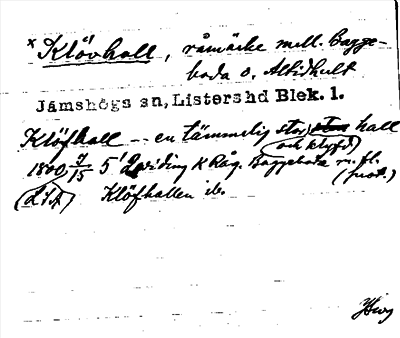 x Klövhall, råmärke mell. Bagge-
boda o. Altidhult
Jämshögs sn, Listers hd Blek. 1.
Klöfhall -- en tämmelig stor hall
(och klyfd)
1800 7/15 5' 2 Råg. Baggeboda m.fl.
(LSA) Klöfhallen ib. (prot.)